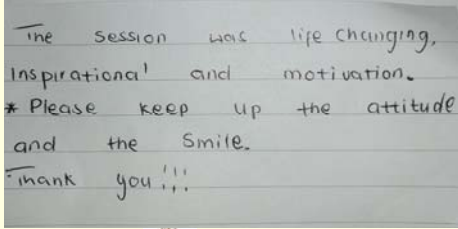 The session was life changing,
Inspirational and motivation.
* Please keep up the attitude
and the smile.
Thank you!!!